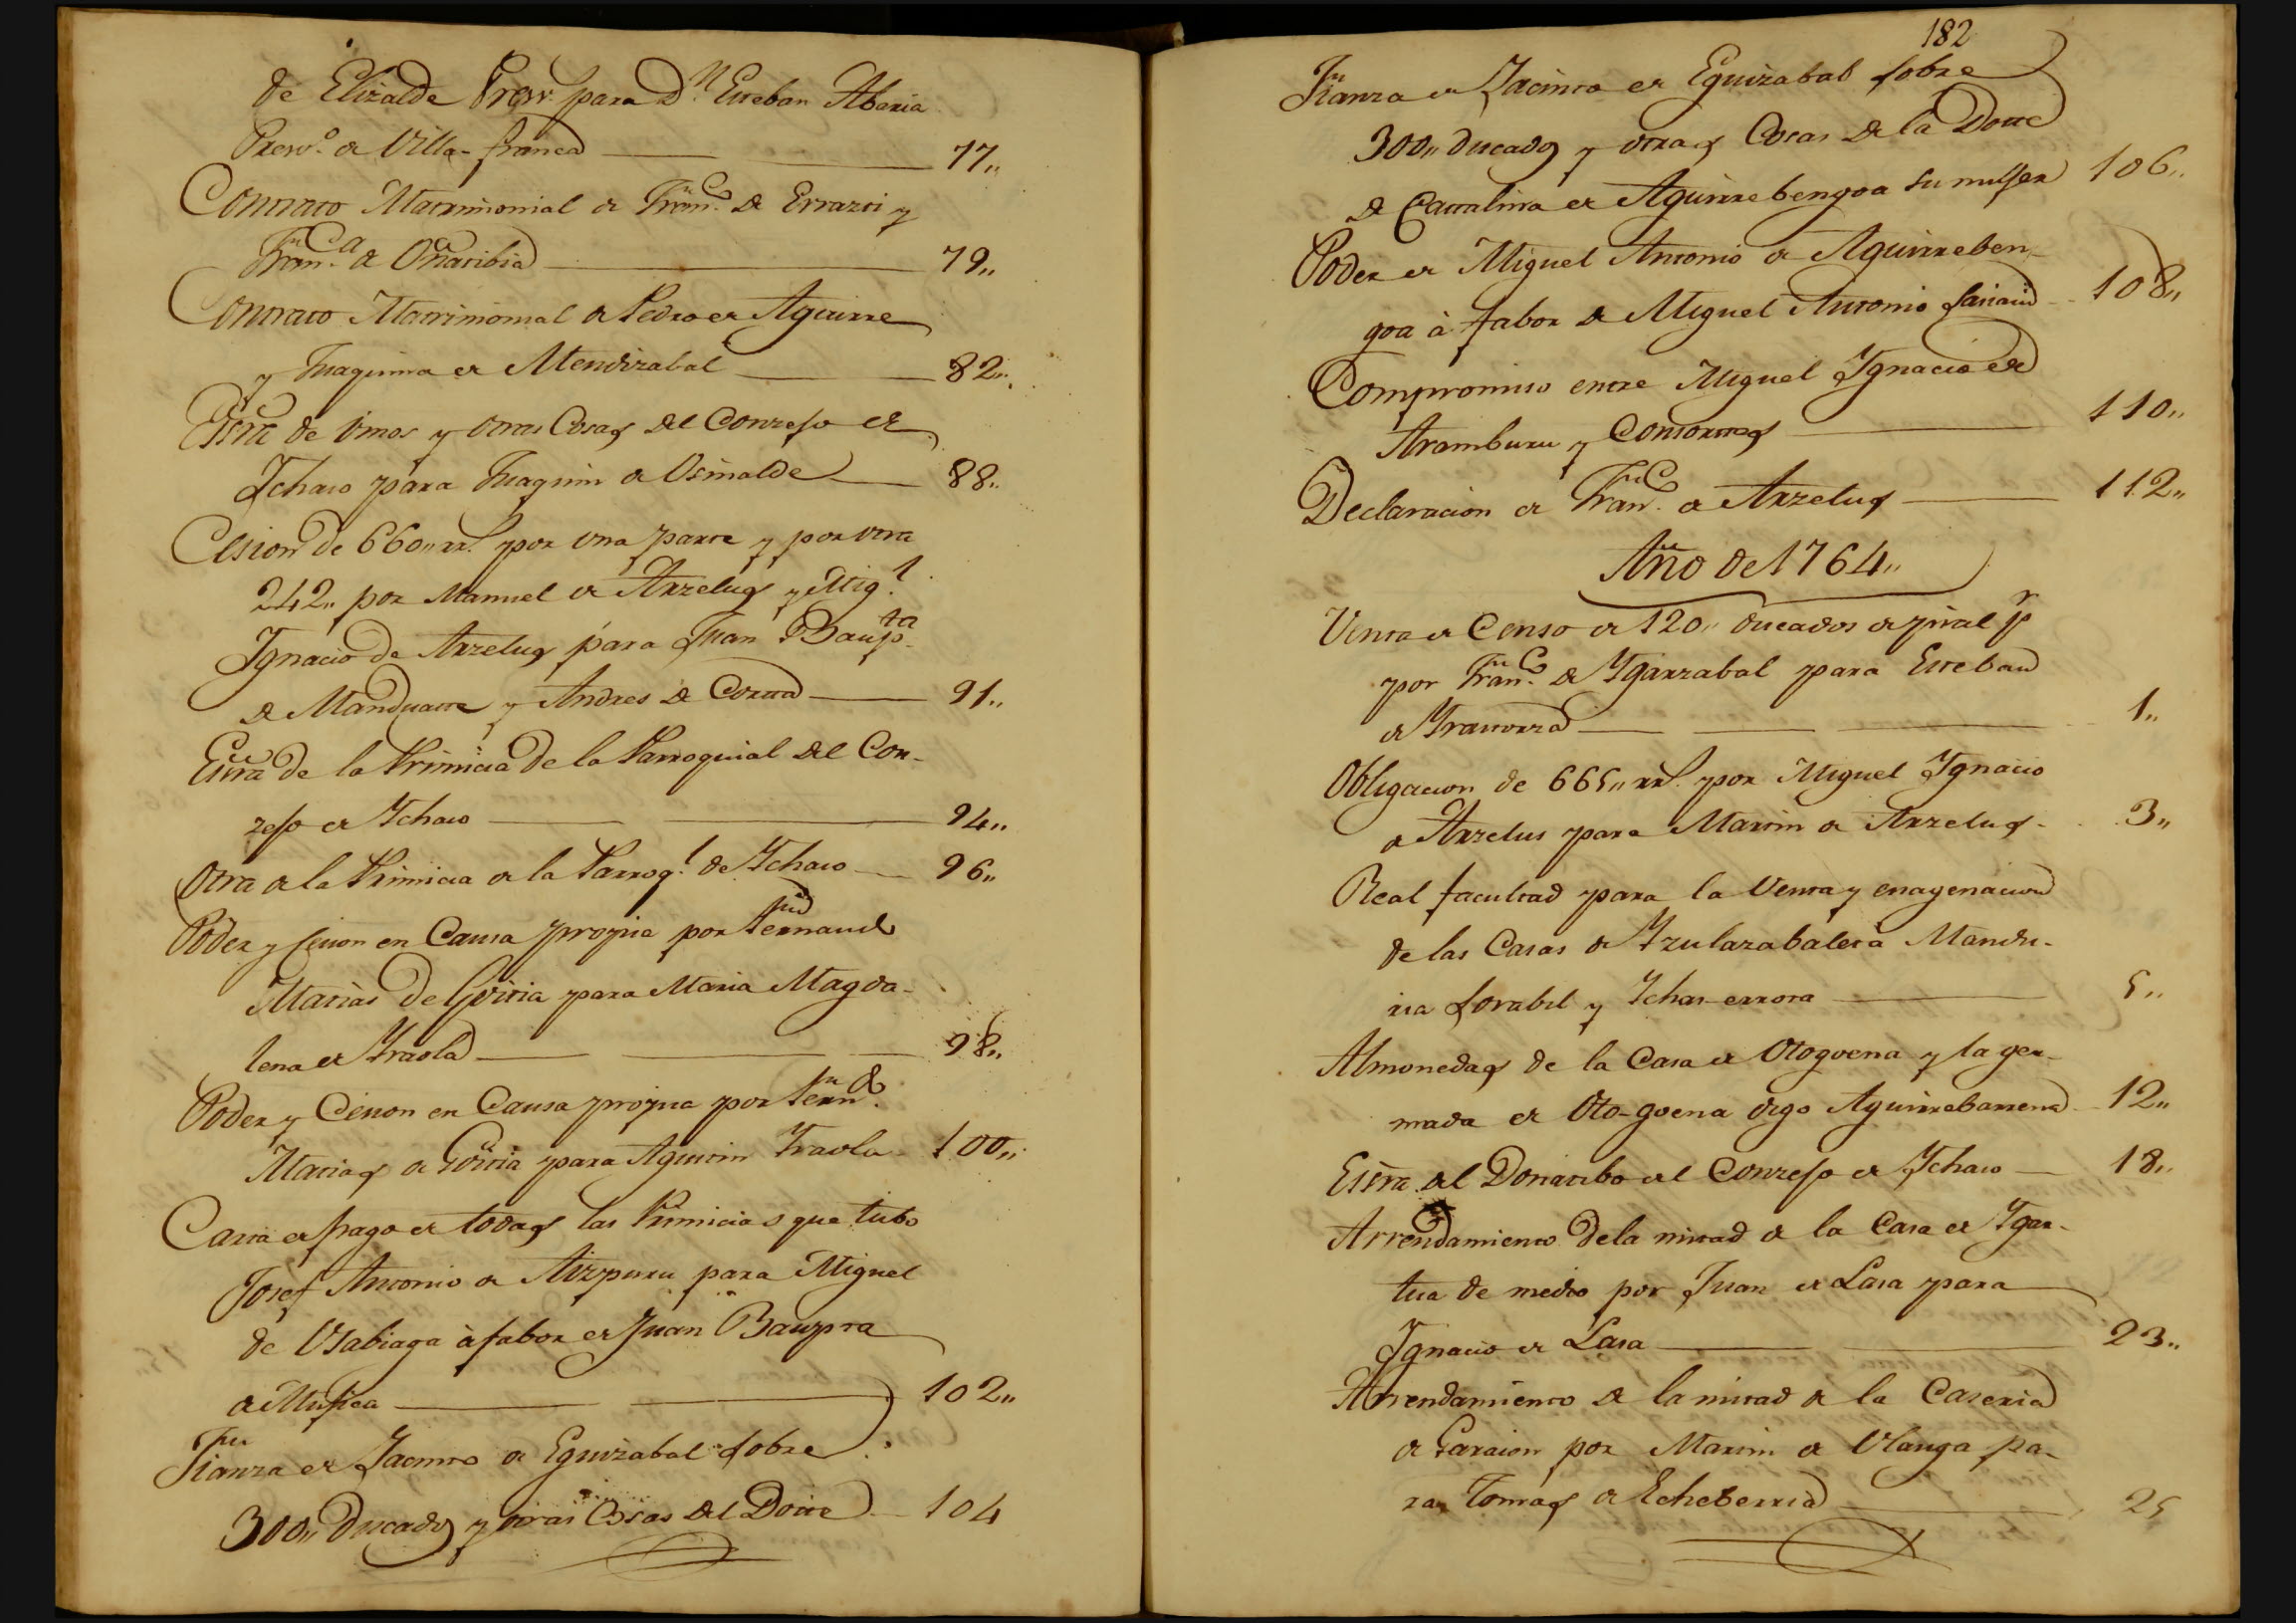 de Elizalde Presv.º para D.ⁿ Esteban Abaria
Presv.º de Villa-franca 77,,
Contrato Matrimonial de Fran.co de Errazti y
Fran.ca de Oñatibia 79,,
Contrato Matrimonial de Pedro de Aguirre
y Juaquina de Mendizabal 82,,
Escra de vinos y otras Cosas del Conzejo de
Ychaso para Juaquin de Osinalde 88,,
Cesion de 660,, rr.s por una parte y por otra
242,, por Manuel de Arzelus y Mig.l
Ygnacio de Arzelus para Juan Baup.ta
de Manduate y Andres de Corta 91,,
Escra de la Primicia de la Parroquial del Con-
zejo de Ychaso 94,,
Otra de la Primicia de la Parroq.l de Ychaso 96,,
Poder y Cesion en Causa propia por Fernando
Matias de Goitia para Maria Magda-
lena de Yraola 98,,
Poder y Cesion en Causa propia por Fern.do
Matias de Goitia para Agustin Yraola 100,,
Carta de pago de todas las Primicias que tubo
Josef Antonio de Aizpuru para Miguel
de Usabiaga à fabor de Juan Baupta
de Mujica 102,,
Fianza de Jacinto de Eguizabal sobre
300,, Ducados y otras Cosas del Dote 104
182
Fianza de Jacinto de Eguizabal sobre
300,, ducados y otras Cosas de la Dote
de Cattalina de Aguirrebengoa su mujer 106,,
Poder de Miguel Antonio de Aguirreben-
goa à fabor de Miguel Antonio 108,,
Compromiso entre Miguel Ygnacio de
Aramburu y Consortes 110,,
Declaracion de Fran.co de Arzelus 112,,
Año de 1764,,
Venta de Censo de 120,, ducados de pral
por Fran.co de Ygarzabal para Esteban
de Yrastorza 1,,
Obligacion de 665,, rr.s por Miguel Ygnacio
de Arzelus para Martin de Arzelus 3,,
Real facultad para la Venta y enagenacion
de las Casas de Yzulazabaleta Mandu-
ita Lorabil y Ychas-errota 5,,
Almonedas de la Casa de Otogoena y la ger-
mada de Oto-goena digo Aguirrebarrena 12,,
Escra del Donatibo del Conzejo de Ychaso 18,,
Arrendamiento dela mitad de la Casa de Ygar-
tua de medio por Juan de Lasa para
Ygnacio de Lasa 23,,
Arrendamiento de la mitad de la Caseria
de Garaion por Martin de Olanga pa-
ra Tomas de Echeberria 25